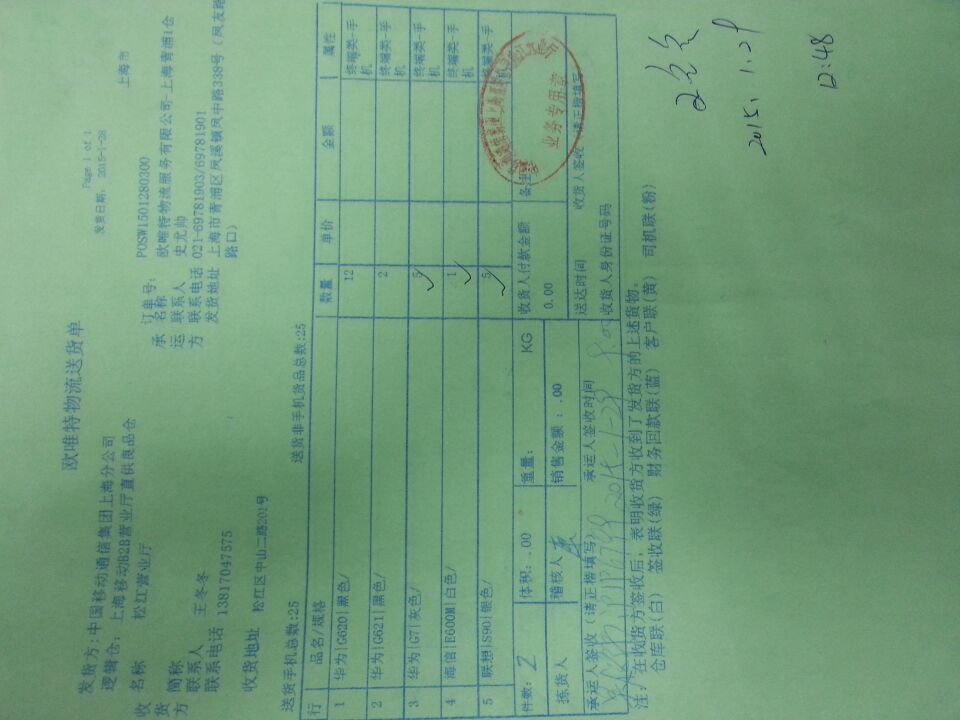 欧唯特物流送货单
Page 1 of 1
发货日期: 2015-1-28
发货方:中国移动通信集团上海分公司
逻辑仓: 上海移动B2B营业厅直供良品仓
上海市
收货方
名称 松江营业厅
简称
联系人 王冬冬
联系电话 13817047575
收货地址 松江区中山二路201号
承运方
订单号: POSW1501280300
名称 欧唯特物流服务有限公司-上海青浦1仓
联系人 史尤帅
联系电话 021-69781903/69781901
发货地址 上海市青浦区凤溪镇凤中路338号(凤友路路口)
送货手机总数:25 送货非手机货品总数:25
行 品名/规格 数量 单价 金额 属性
1 华为|G620|黑色/ 12 终端类-手机
2 华为|G621|黑色/ 2 终端类-手机
3 华为|G7|灰色/ 5 终端类-手机
4 海信|E600M|白色/ 1 终端类-手机
5 联想|S90|银色/ 5 终端类-手机
件数: 2 体积: .00 重量: KG 收货人付款金额 0.00 备注:
拣货人 稽核人 销售金额: .00
业务专用章
承运人签收(请正楷填写) 承运人签收时间 送达时间 收货人签收(请正楷填写)
2015-1-29
收货人身份证号码
注: 在收货方签收后, 表明收货方收到了发货方的上述货物。
仓库联(白) 签收联(绿) 财务回款联(蓝) 客户联(黄) 司机联(粉)
2015. 1.29
12:48